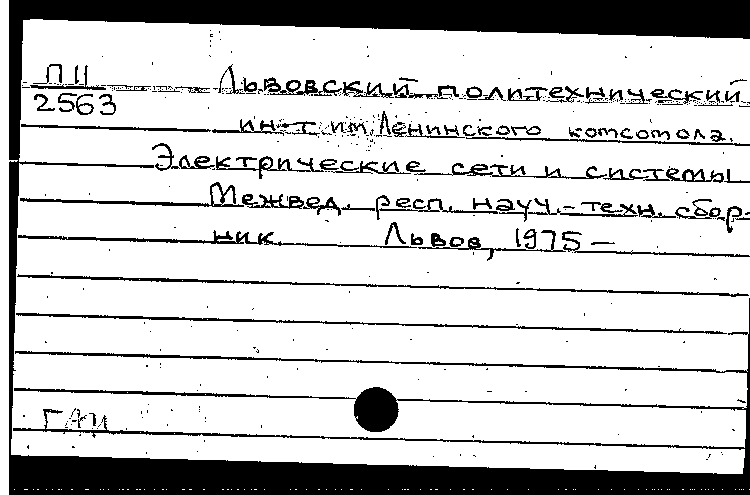 П11
2563
Львовский политехнический
ин-т им. Ленинского комсомола.
Электрические сети и системы
Межвед. респ. науч.-техн. сбор-
ник. Львов, 1975 –
ГАИ